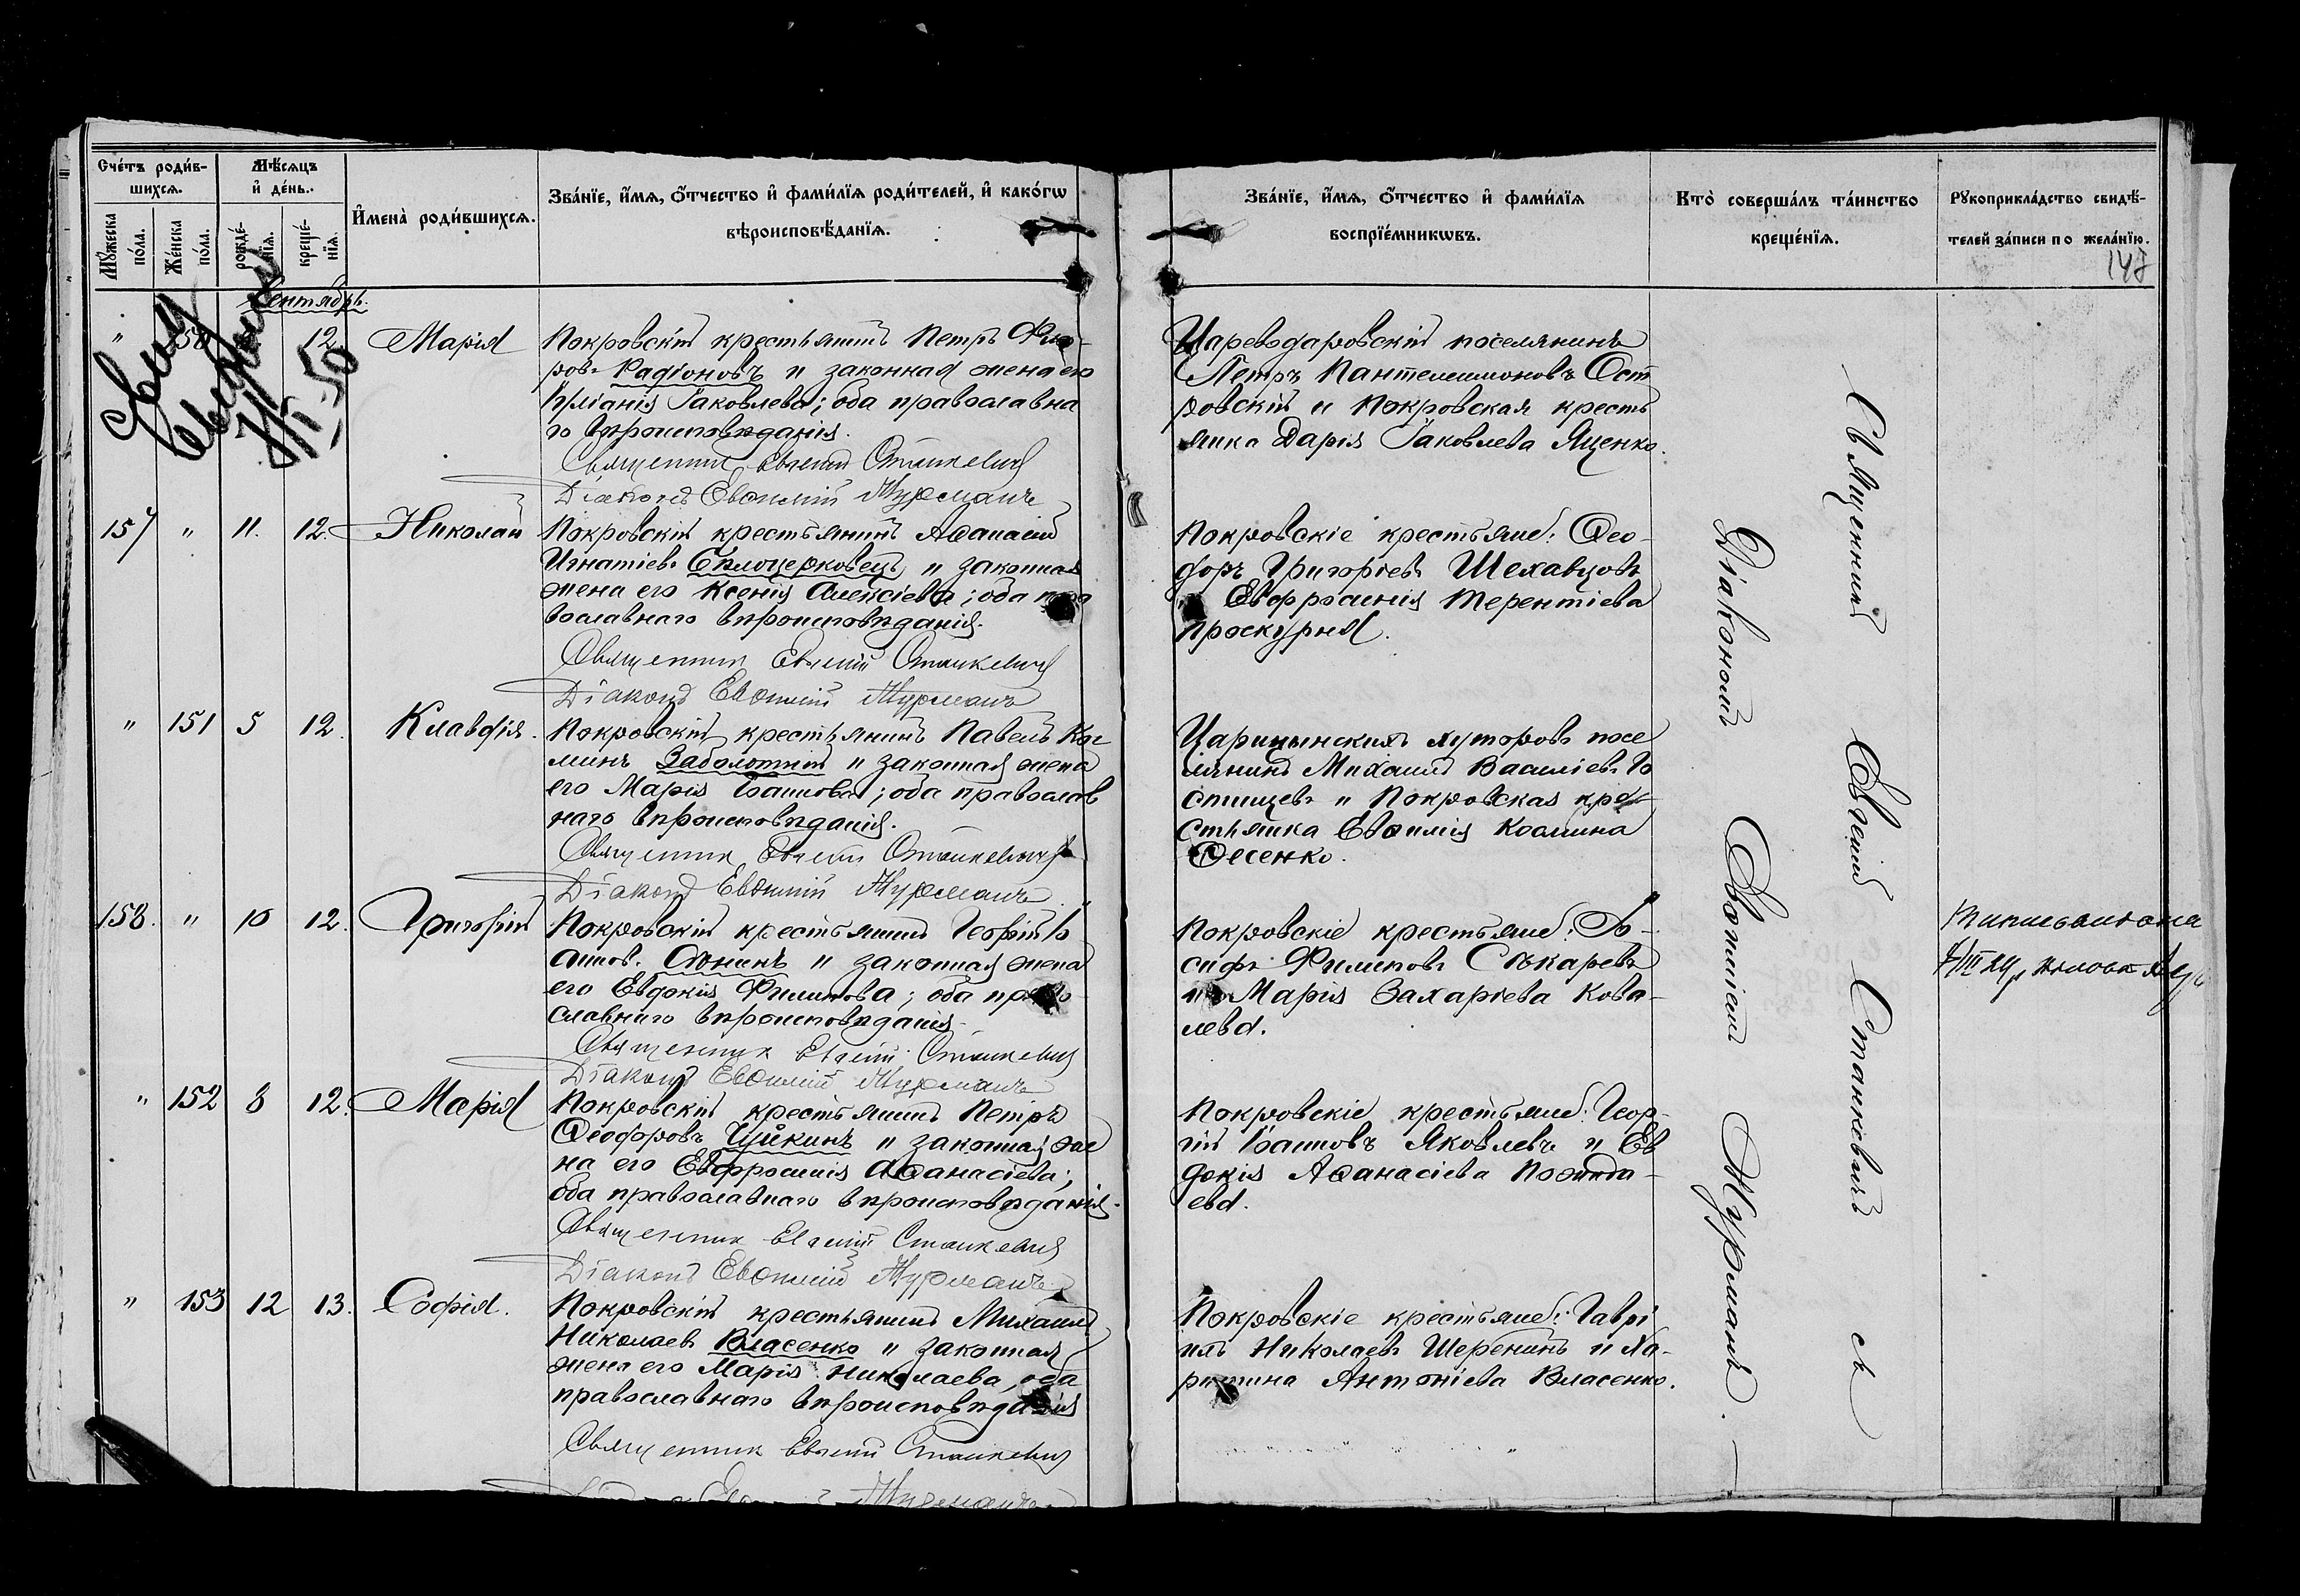 Счетъ родив-
шихся.
Мужеска
пола.
Женска
пола.
Мѣсяцъ
и день.
рожде-
нія.
креще-
нія.
Имена родившихся.
Званіе, имя, отчество и фамилія родителей, и какого
вѣроисповѣданія.
Званіе, имя, отчество и фамилія
воспріемниковъ.
Кто совершалъ таинство
крещенія.
Рукоприкладство свидѣ-
телей записи по желанію.
147
Сентябрь.
" 12 Марія
Покровскій крестьянинъ Петръ
ровъ Радіоновъ и законная жена его
Іаковлева; оба православна
го вѣроисповѣданія.
Священникъ Евгеній Станкевичъ
Діаконъ Евѳимій Журманъ
Цареводаровскій поселянинъ
Петръ Пантелеимоновъ Ост
ровскій и Покровская кресть
янка Дарія Іаковлева Яценко.
157 " 11. 12. Николай
Покровскій крестьянинъ Аѳанасій
Игнатіевъ Бѣлоцерковецъ и законная
жена его Ксенія Алексіева; оба пра
вославнаго вѣроисповѣданія.
Священникъ Евгеній Станкевичъ
Діаконъ Евѳимій Журманъ
Покровскіе крестьяне: Ѳео-
доръ Григоріевъ Шехавцовъ
Евфросинія Терентіева
Проскурня.
" 151 5 12. Клавдія.
Покровскій крестьянинъ Павелъ Кос
минъ Заболотній и законная жена
его Марія Іоаннова; оба православ
наго вѣроисповѣданія.
Священникъ Евгеній Станкевичъ
Діаконъ Евѳимій Журманъ
Царицынскихъ хуторовъ посе
лянинъ Михаилъ Василіевъ Го
стищевъ и Покровская кре-
стьянка Евѳимія Космина
Ѳесенко.
158. " 10 12. Григорій
Покровскій крестьянинъ Георгій Іо
анновъ и законная жена
его Евдокія Филипова; оба право
славнаго вѣроисповѣданія.
Священникъ Евгеній Станкевичъ
Діаконъ Евѳимій Журманъ
Покровскіе крестьяне: Іо-
сифъ Филиповъ Сѣкаревъ
и Марія Захаріева Кова-
лева.
" 152 8 12. Марія
Покровскій крестьянинъ Петръ
Ѳеодоровъ и законная же
на его Евфросинія Аѳанасіева;
оба православнаго вѣроисповѣданія.
Священникъ Евгеній Станкевичъ
Діаконъ Евѳимій Журманъ
Покровскіе крестьяне: Геор-
гій Іоанновъ Яковлевъ и Ев
докія Аѳанасіева
ева.
" 153 12 13. Софія.
Покровскій крестьянинъ Михаилъ
Николаевъ Власенко и законная
жена его Марія Николаева, оба
православнаго вѣроисповѣданія
Священникъ Евгеній Станкевичъ
Покровскіе крестьяне: Гаврі
илъ Николаевъ Шеренинъ и Ха-
ритина Антоніева Власенко.
Священникъ Евгеній Станкевичъ съ
Діакономъ Евѳиміемъ Журманъ.